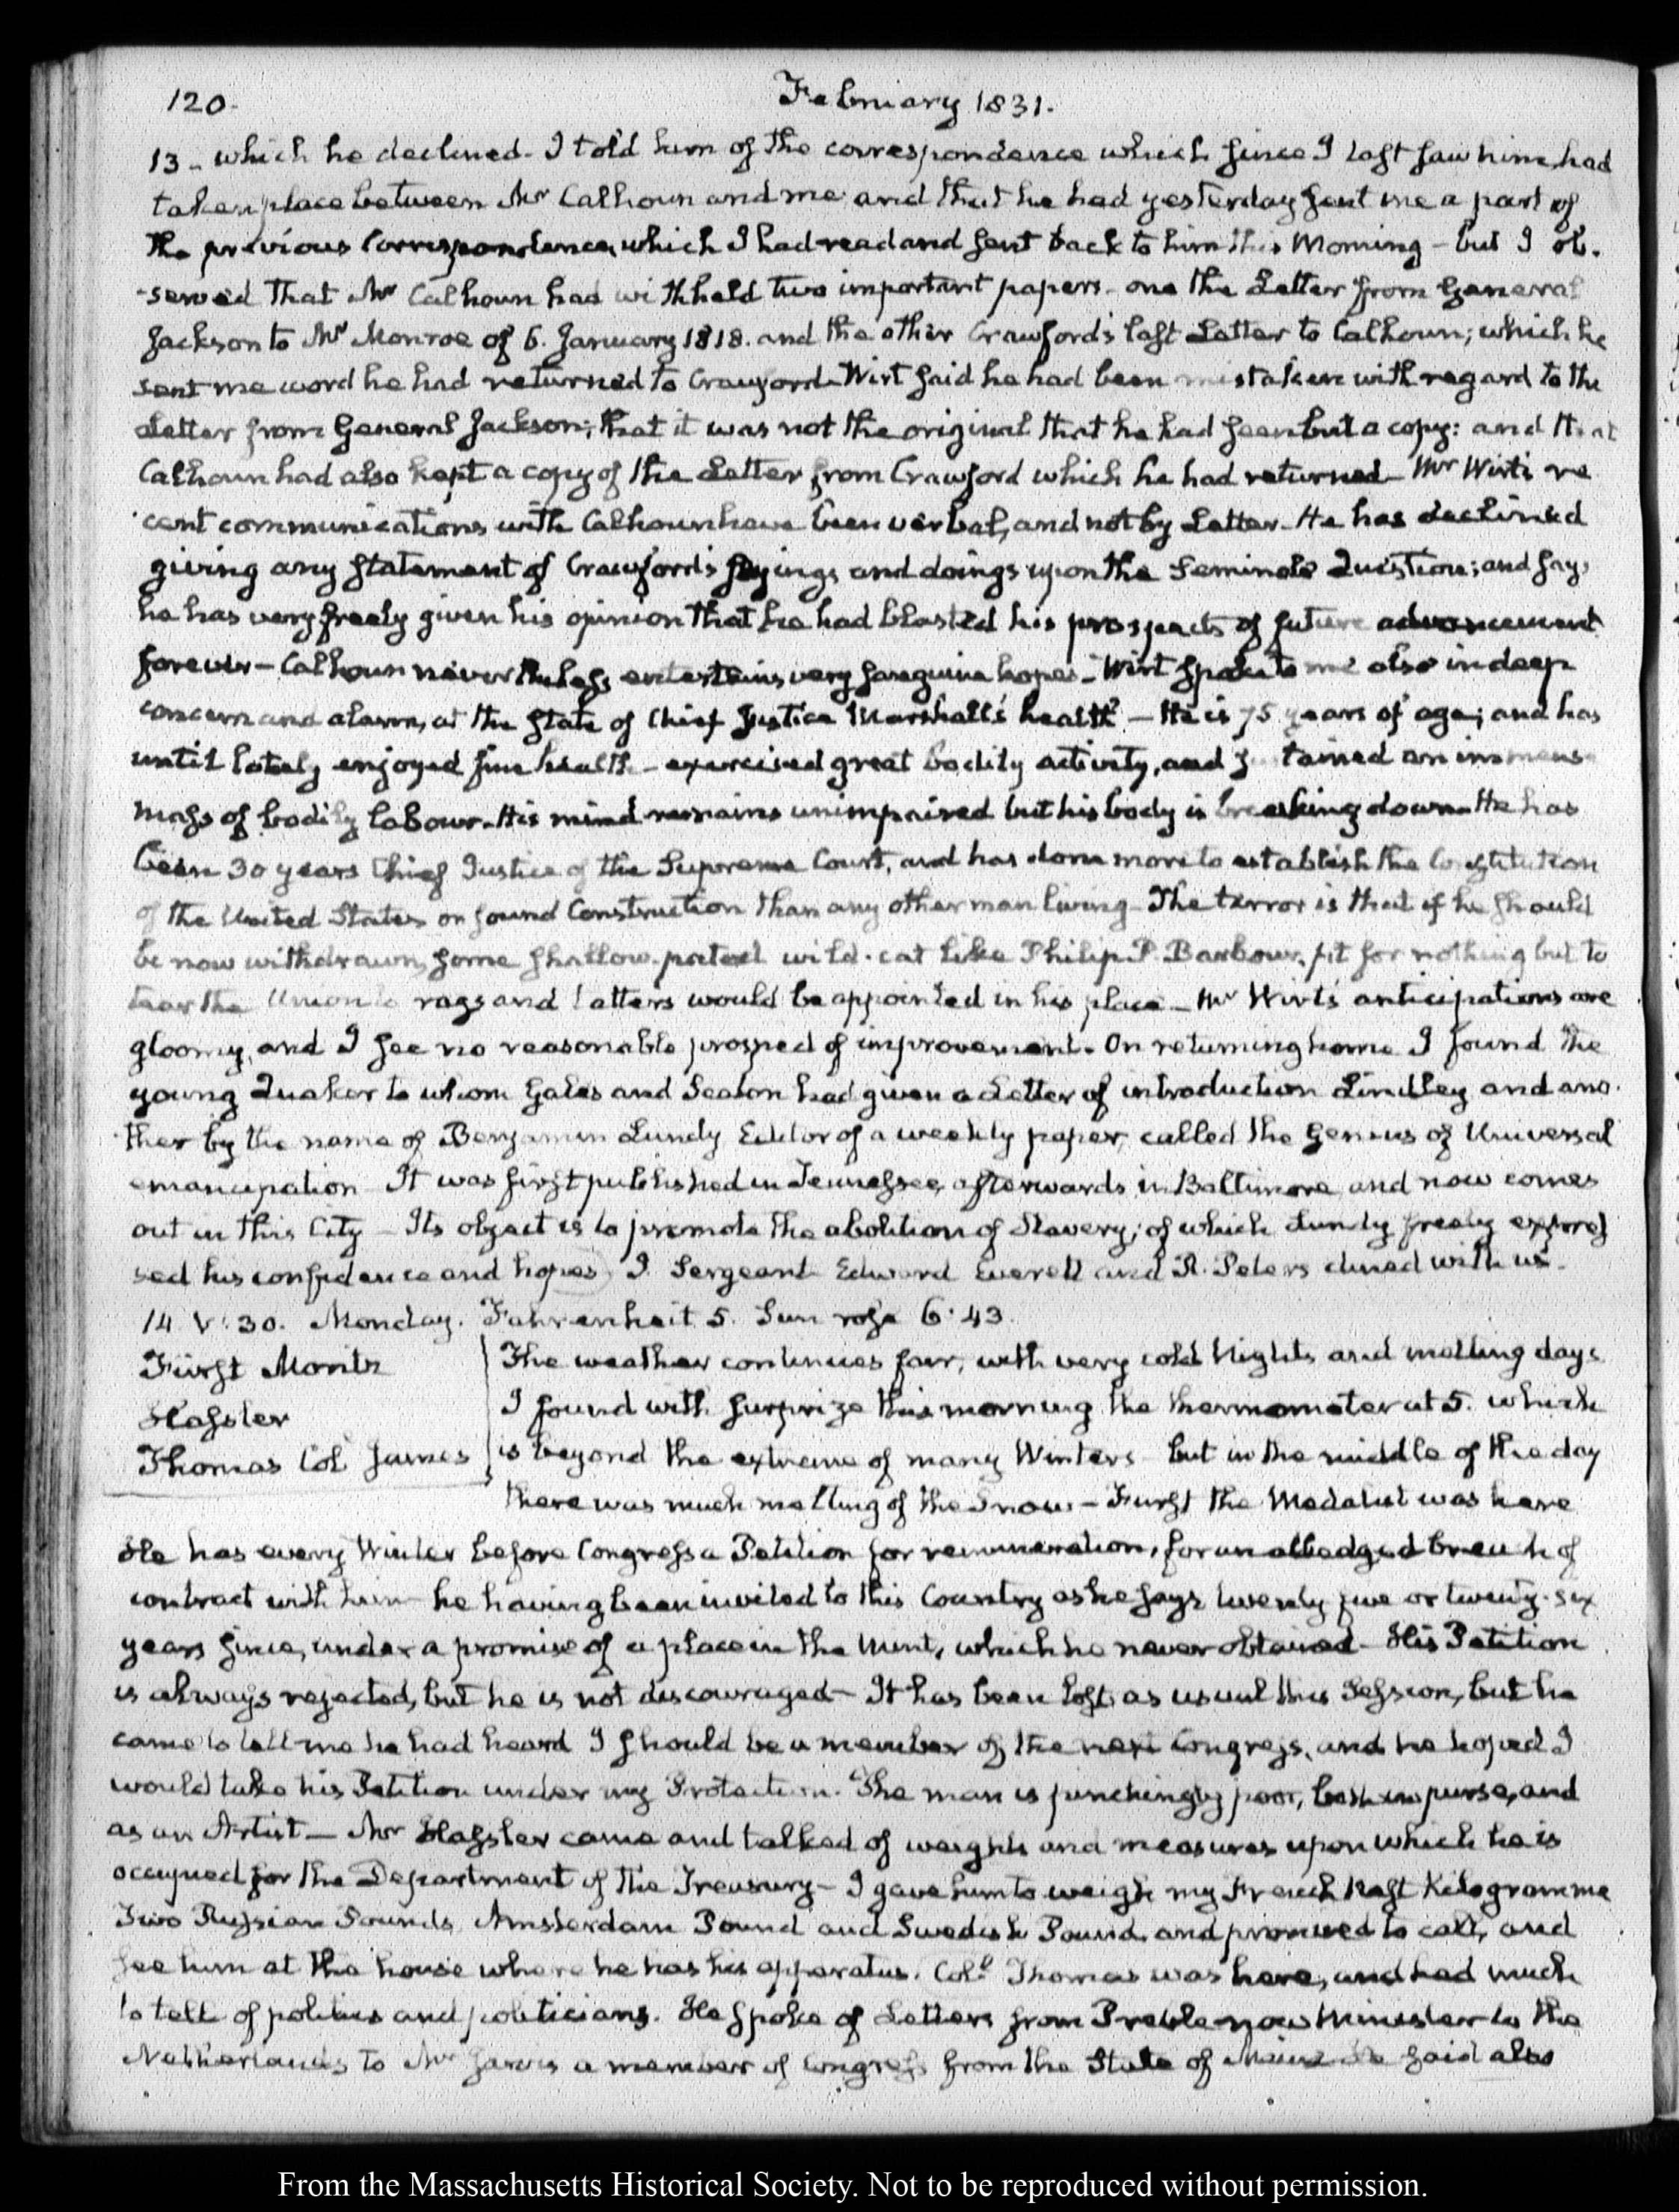 120.
February 1831.
13 - which he declined. I told him of the correspondence which since I last saw him, had
taken place between Mr Calhoun and me and that he had yesterday sent me a part of
the previous Correspondence, which I had read and sent back to him this Morning - but I ob-
served that Mr Calhoun had withheld two important papers - one the Letter from General
Jackson to Mr Monroe of 6. January 1818. and the other Crawford's last Letter to Calhoun; which he
sent me word he had returned to Crawford. Wirt said he had been mistaken with regard to the
Letter from General Jackson; that it was not the original that he had seen but a copy: and that
Calhoun had also kept a copy of the Letter from Crawford which he had returned - Mr Wirt's re
cent communications with Calhoun have been verbal, and not by Letter. He has declined
giving any statement of Crawford's sayings and doings upon the Seminole Question; and says
he has very freely given his opinion that he had blasted his prospects of future advancement
forever - Calhoun nevertheless entertains very sanguine hopes - Wirt spoke to me also in deep
concern and alarm, at the state of Chief Justice Marshall's health - He is 75 years of age; and has
until lately enjoyed fine health - exercised great bodily activity, and sustained an immense
mass of bodily labour. His mind remains unimpaired but his body is breaking down - He has
been 30 years Chief Justice of the Supreme Court, and has done more to establish the Constitution
of the United States on sound Construction than any other man living - The terror is that if he should
be now withdrawn, some shallow-pated wild-cat like Philip P. Barbour, fit for nothing but to
tear the Union to rags and tatters would be appointed in his place - Mr Wirt's anticipations are
gloomy, and I see no reasonable prospect of improvement. On returning home I found the
young Quaker to whom Gales and Seaton had given a Letter of introduction Lindley and ano-
ther by the name of Benjamin Lundy Editor of a weekly paper, called the Genius of Universal
emancipation It was first published in Tennessee, afterwards in Baltimore, and now comes
out in this City - Its object is to promote the abolition of Slavery; of which Lundy freely expres
sed his confidence and hopes J. Sergeant Edward Everett and R. Peters dined with us.
14 V: 30. Monday. Fahrenheit 5. Sun rose 6:43.
Fürst Moritz
Hassler
Thomas Col James
The weather continues fair, with very cold Nights and melting days
I found with surprize this morning the thermometer at 5. which
is beyond the extreme of many Winters but in the middle of the day
there was much melting of the Snow - Furst the Medalist was here
He has every Winter before Congress a Petition for remuneration, for an alledged breach of
contract with him - he having been invited to this Country as he says twenty five or twenty-six
years since, under a promise of a place in the Mint, which he never obtained - His Petition
is always rejected, but he is not discouraged - It has been lost as usual this Session, but he
came to tell me he had heard I should be a member of the next Congress, and he hoped I
would take his Petition under my Protection. The man is pinchingly poor, both in purse, and
as an Artist - Mr Hassler came and talked of weights and measures upon which he is
occupied for the Department of the Treasury - I gave him to weigh my French Half Kilogramme
Two Russian Pounds, Amsterdam Pound and Swedish Pound, and promised to call, and
see him at the house where he has his apparatus. Coll Thomas was here, and had much
to tell of politics and politicians. He spoke of Letters from Preble now Minister to the
Netherlands to Mr Jarvis a member of Congress from the State of Maine he said also
From the Massachusetts Historical Society. Not to be reproduced without permission.